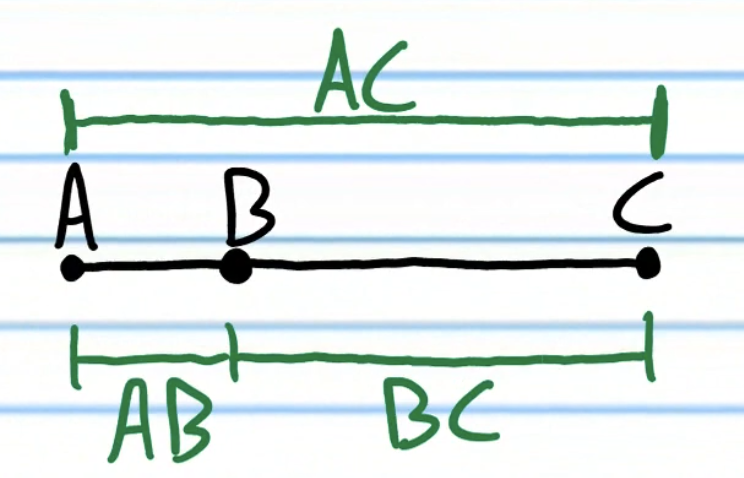 AC
A B C
AB BC